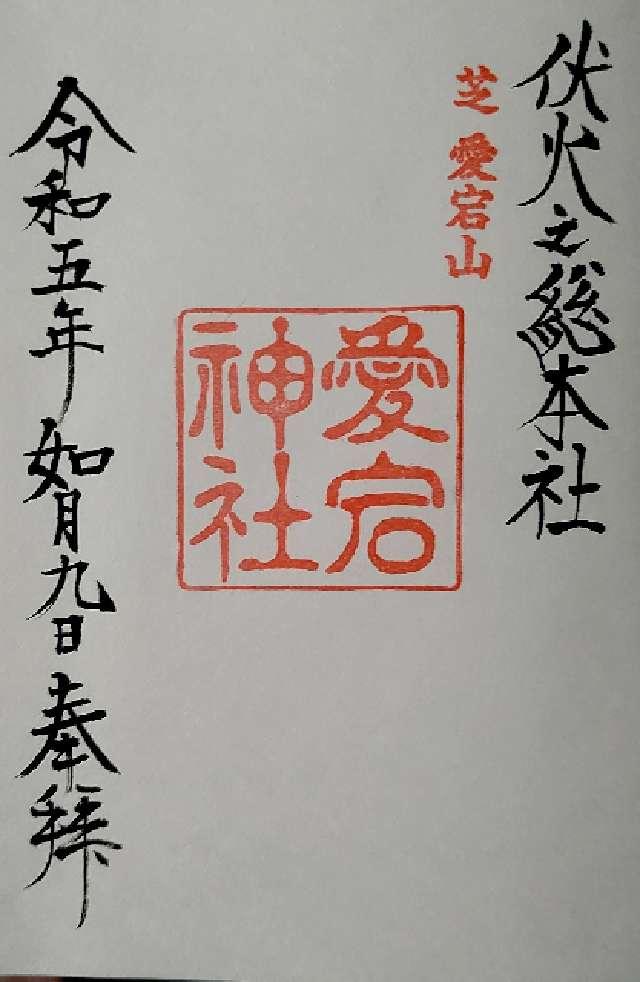 伏火之総本社
芝 愛宕山
愛宕
神社
令和五年 如月九日 奉拝